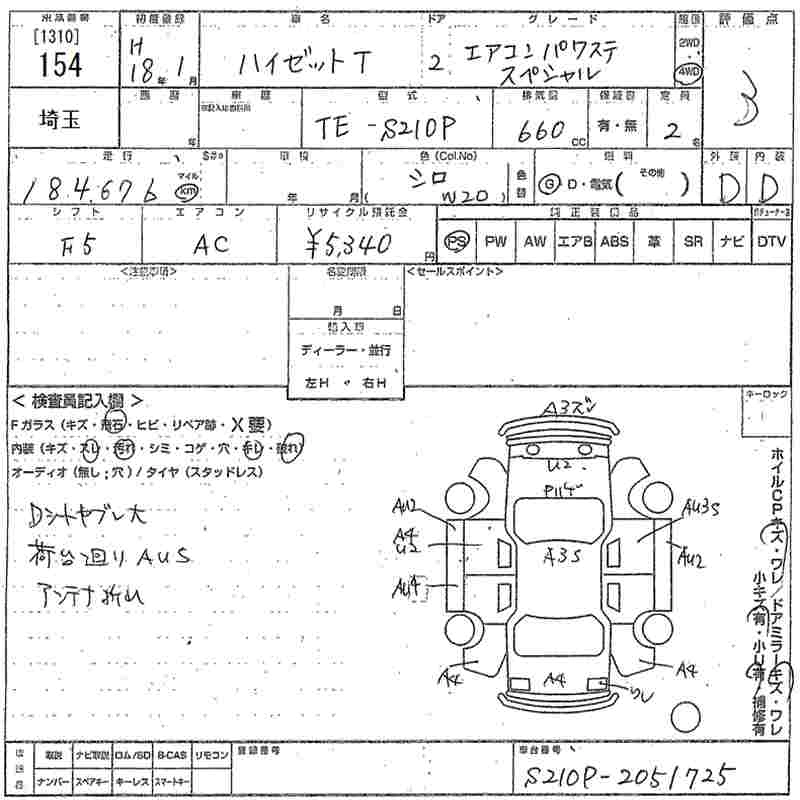 出品番号 初度登録 車名 ドア グレード 駆動 評価点
[1310] 154 H18年1月 ハイゼットT 2 エアコン パワステ スペシャル 2WD 4WD 3
埼玉 車歴 型式 排気量 保証書 定員
年 TE-S210P 660CC 有・無 2名
走行 車検 色(Col.No) 色替 燃料 外装 内装
184,676 マイル km 年 月 シロ (W20) G・D・電気( その他 ) D D
シフト エアコン リサイクル預託金 純正装備品
F5 AC ¥5,340円 PS PW AW エアB ABS 革 SR ナビ DTV
<注意事項> 名変期限 <セールスポイント>
月 日
輸入車
ディーラー・並行
左H ・ 右H
<検査員記入欄> キーロック
Fガラス(キズ・飛石・ヒビ・リペア跡・X要)
内装(キズ・スレ・汚れ・シミ・コゲ・穴・キレ・破れ)
オーディオ(無し・穴)/タイヤ(スタッドレス)
Dシートヤブレ大
荷台廻りAUS
アンテナ折れ
A3ズレ
U2
AU2
A4
U2
AU4
A3S
AU3S
AU2
A4
A4
ワレ
A4
ホイルCPキズ・ワレ/ドアミラーキズ・ワレ
小キズ有・小U有/補修有
取説 ナビ取説 ロム/SD B-CAS リモコン 登録番号 車台番号
ナンバー スペアキー キーレス スマートキー S210P-2051725